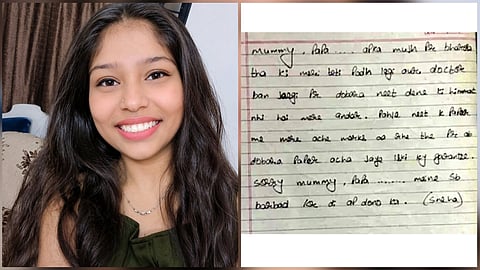 mummy, Papa ..... apka mujh pr bharosa
tha ki meri beti Padh legi doctor
ban jaegi Pr dobara neet dene ki himmat
nhi hai mere andar. Pahle neet k Paper
me mere ache marks aa rhe the Pr ab
dobara Paper acha jaye iski ky
sorry mummy, Papa ......... maine sb
barbad kr di ap dono ka. (Sneha)